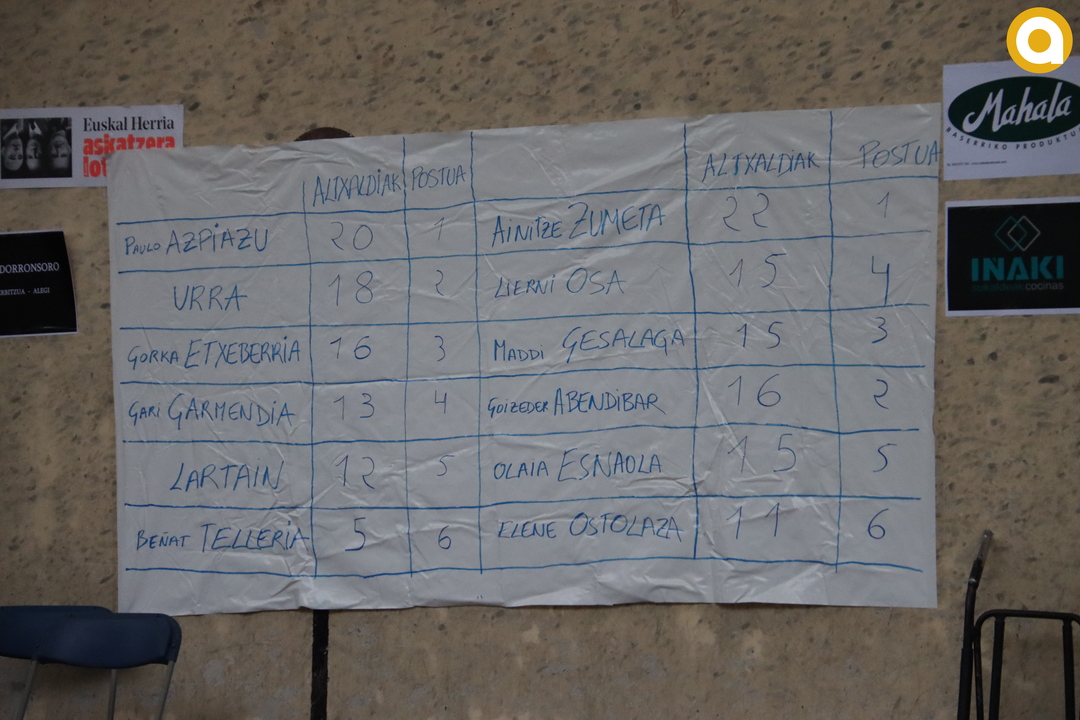 a
Euskal Herria
askatzera
Mahala
BASERRIKO PRODUKTU
DORRONSORO
ALEGI
INAKI
cocinas
ALTXALDIAK POSTUA ALTXALDIAK POSTUA
PAULO AZPIAZU 20 1 AINITZE ZUMETA 22 1
URRA 18 2 LIERNI OSA 15 4
GORKA ETXEBERRIA 16 3 MADDI GESALAGA 15 3
GARI GARMENDIA 13 4 GOIZEDER ABENDIBAR 16 2
LARTAIN 12 5 OLAIA ESNAOLA 15 5
BEÑAT TELLERIA 5 6 ELENE OSTOLAZA 11 6